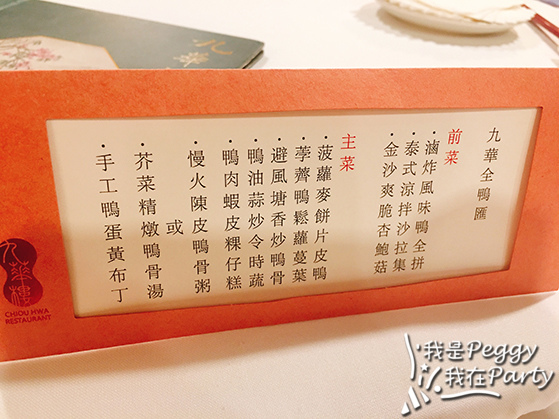 九華
九華全鴨匯
前菜
・滷炸風味鴨全拼
・泰式涼拌沙拉集
・金沙爽脆杏鮑菇
主菜
・菠蘿麥餅片皮鴨
・荸薺鴨鬆蘿蔓葉
・避風塘香炒鴨骨
・鴨油蒜炒令時蔬
・鴨肉蝦皮粿仔糕
・慢火陳皮鴨骨粥
或
・芥菜精燉鴨骨湯
・手工鴨蛋黃布丁
九華樓
CHIOU HWA
RESTAURANT
我是Peggy
我在Party